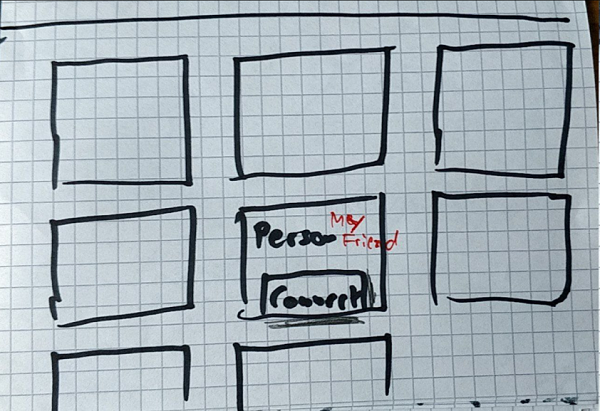 Person
My
Friend
Connect